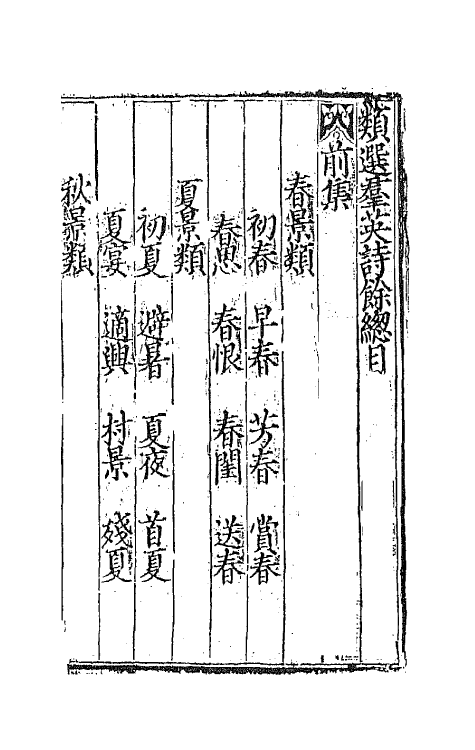 類選羣英詩餘總目
前集
春景類
初春 早春 芳春 賞春
春思 春恨 春閨 送春
夏景類
初夏 避暑 夏夜 首夏
夏宴 適興 村景 殘夏
秋景類